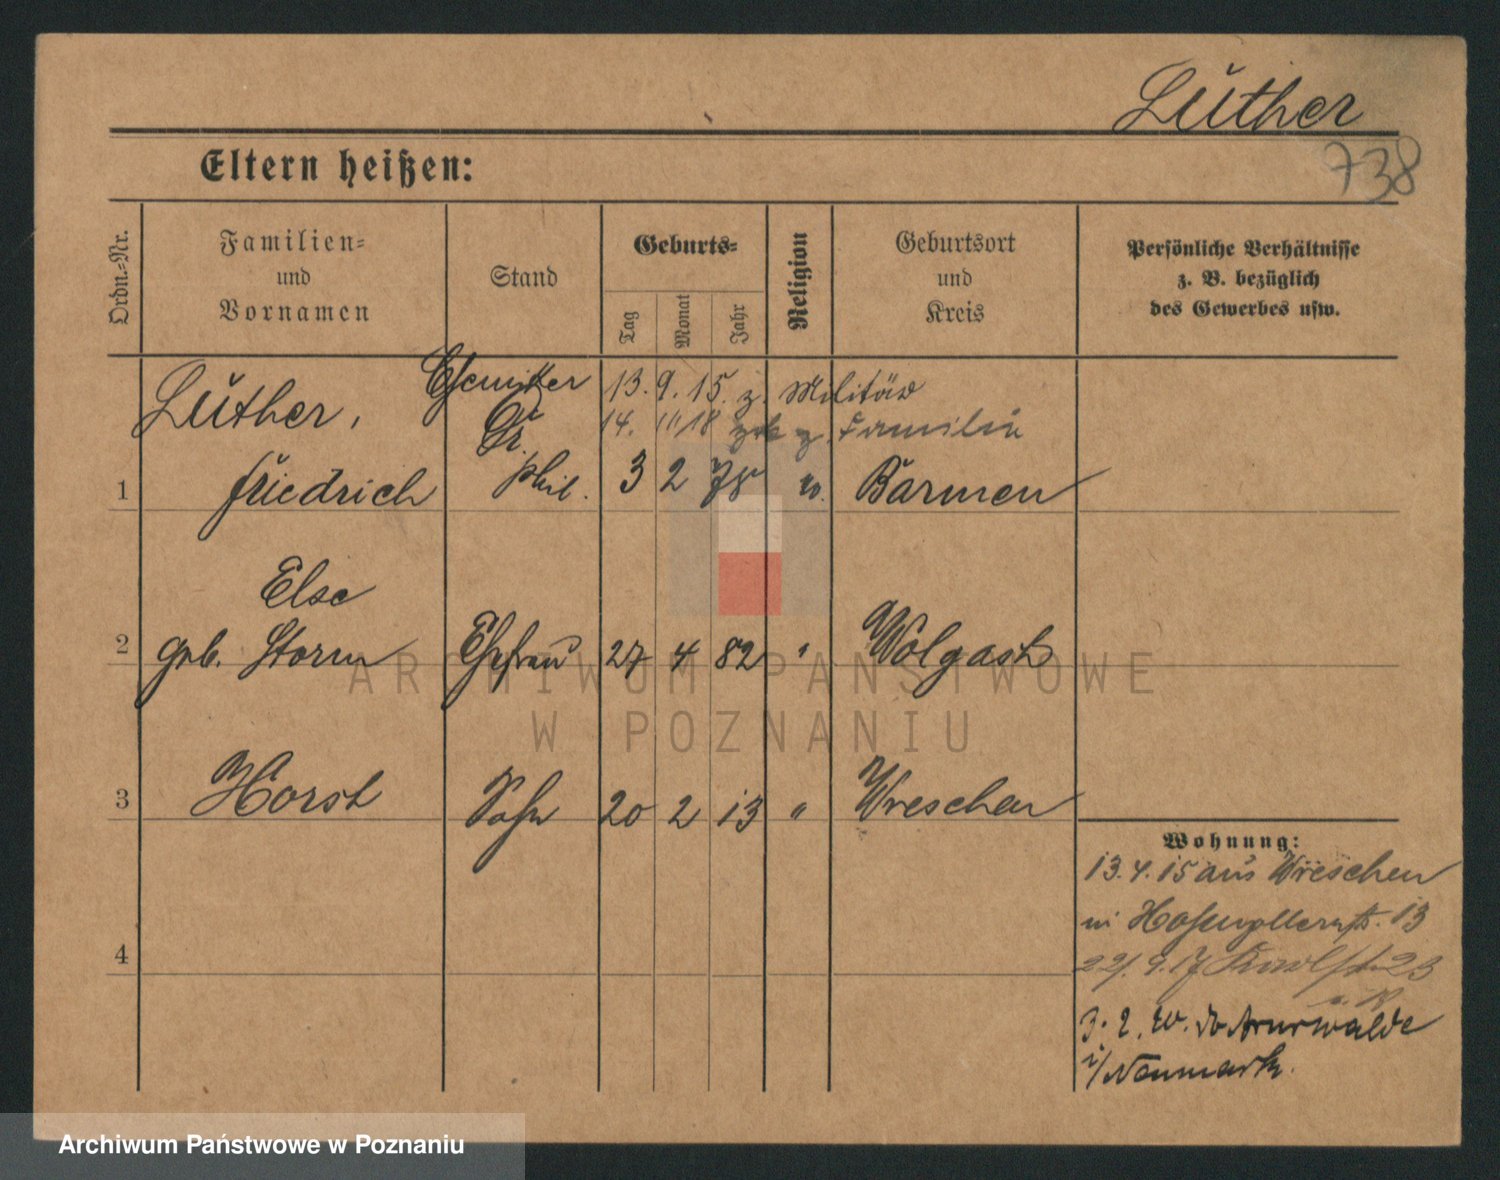 Luther
738
Eltern heißen:
Ordn.-Nr.
Familien-
und
Vornamen
Stand
Geburts-
Tag
Monat
Jahr
Religion
Geburtsort
und
Kreis
Persönliche Verhältnisse
z. B. bezüglich
des Gewerbes usw.
13. 9. 15. z. Militär
14. 11 18 z. Familie
1
Luther,
Friedrich
Dr.
phil.
3 2 78 Barmen
2
Else
geb. Storm
Ehefrau
27 4 82 " Wolgast
3
Horst
Sohn
20 2 13 " Wreschen
4
Wohnung:
13. 4. 15 aus Wreschen
in Hohenzollernstr. 13
22/. 9. 17 Karlstr 23
3. 2. 20. Arnswalde
i/Neumark.
ARCHIWUM PAŃSTWOWE
W POZNANIU
Archiwum Państwowe w Poznaniu